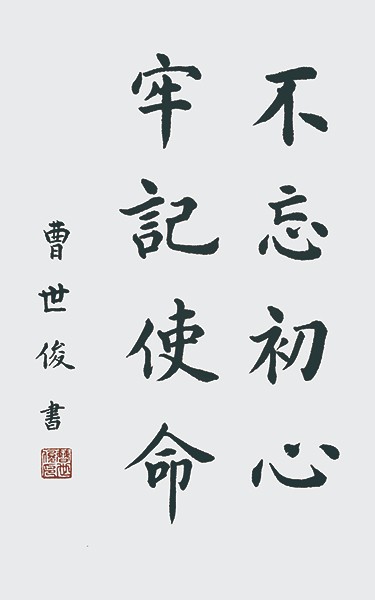 不忘初心
牢記使命
曹世俊書